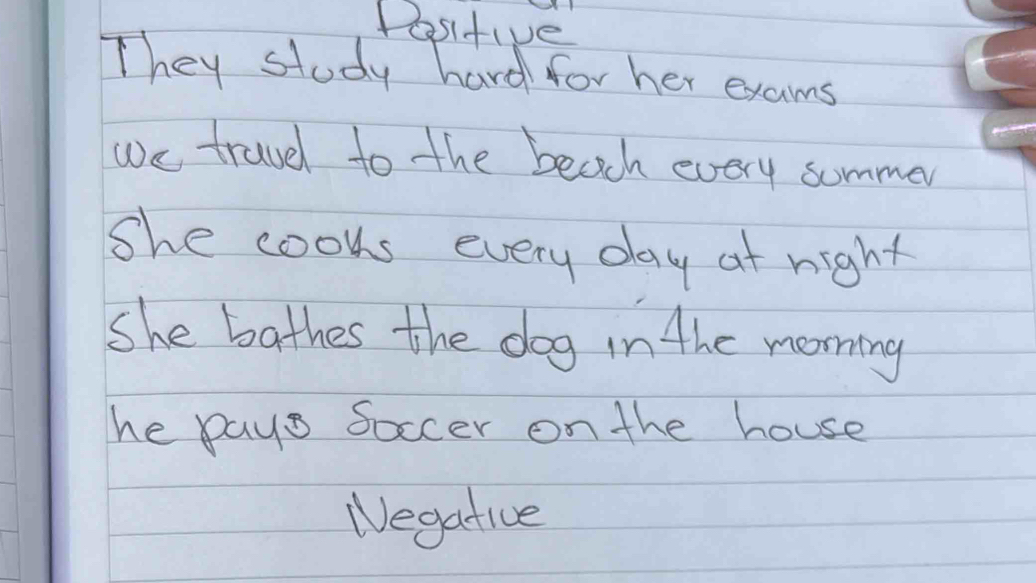 Positive
They study hard for her exams
we travel to the beach every summer
She cooks every day at night
She bathes the dog in the morning
he pays Soccer on the house
Negative